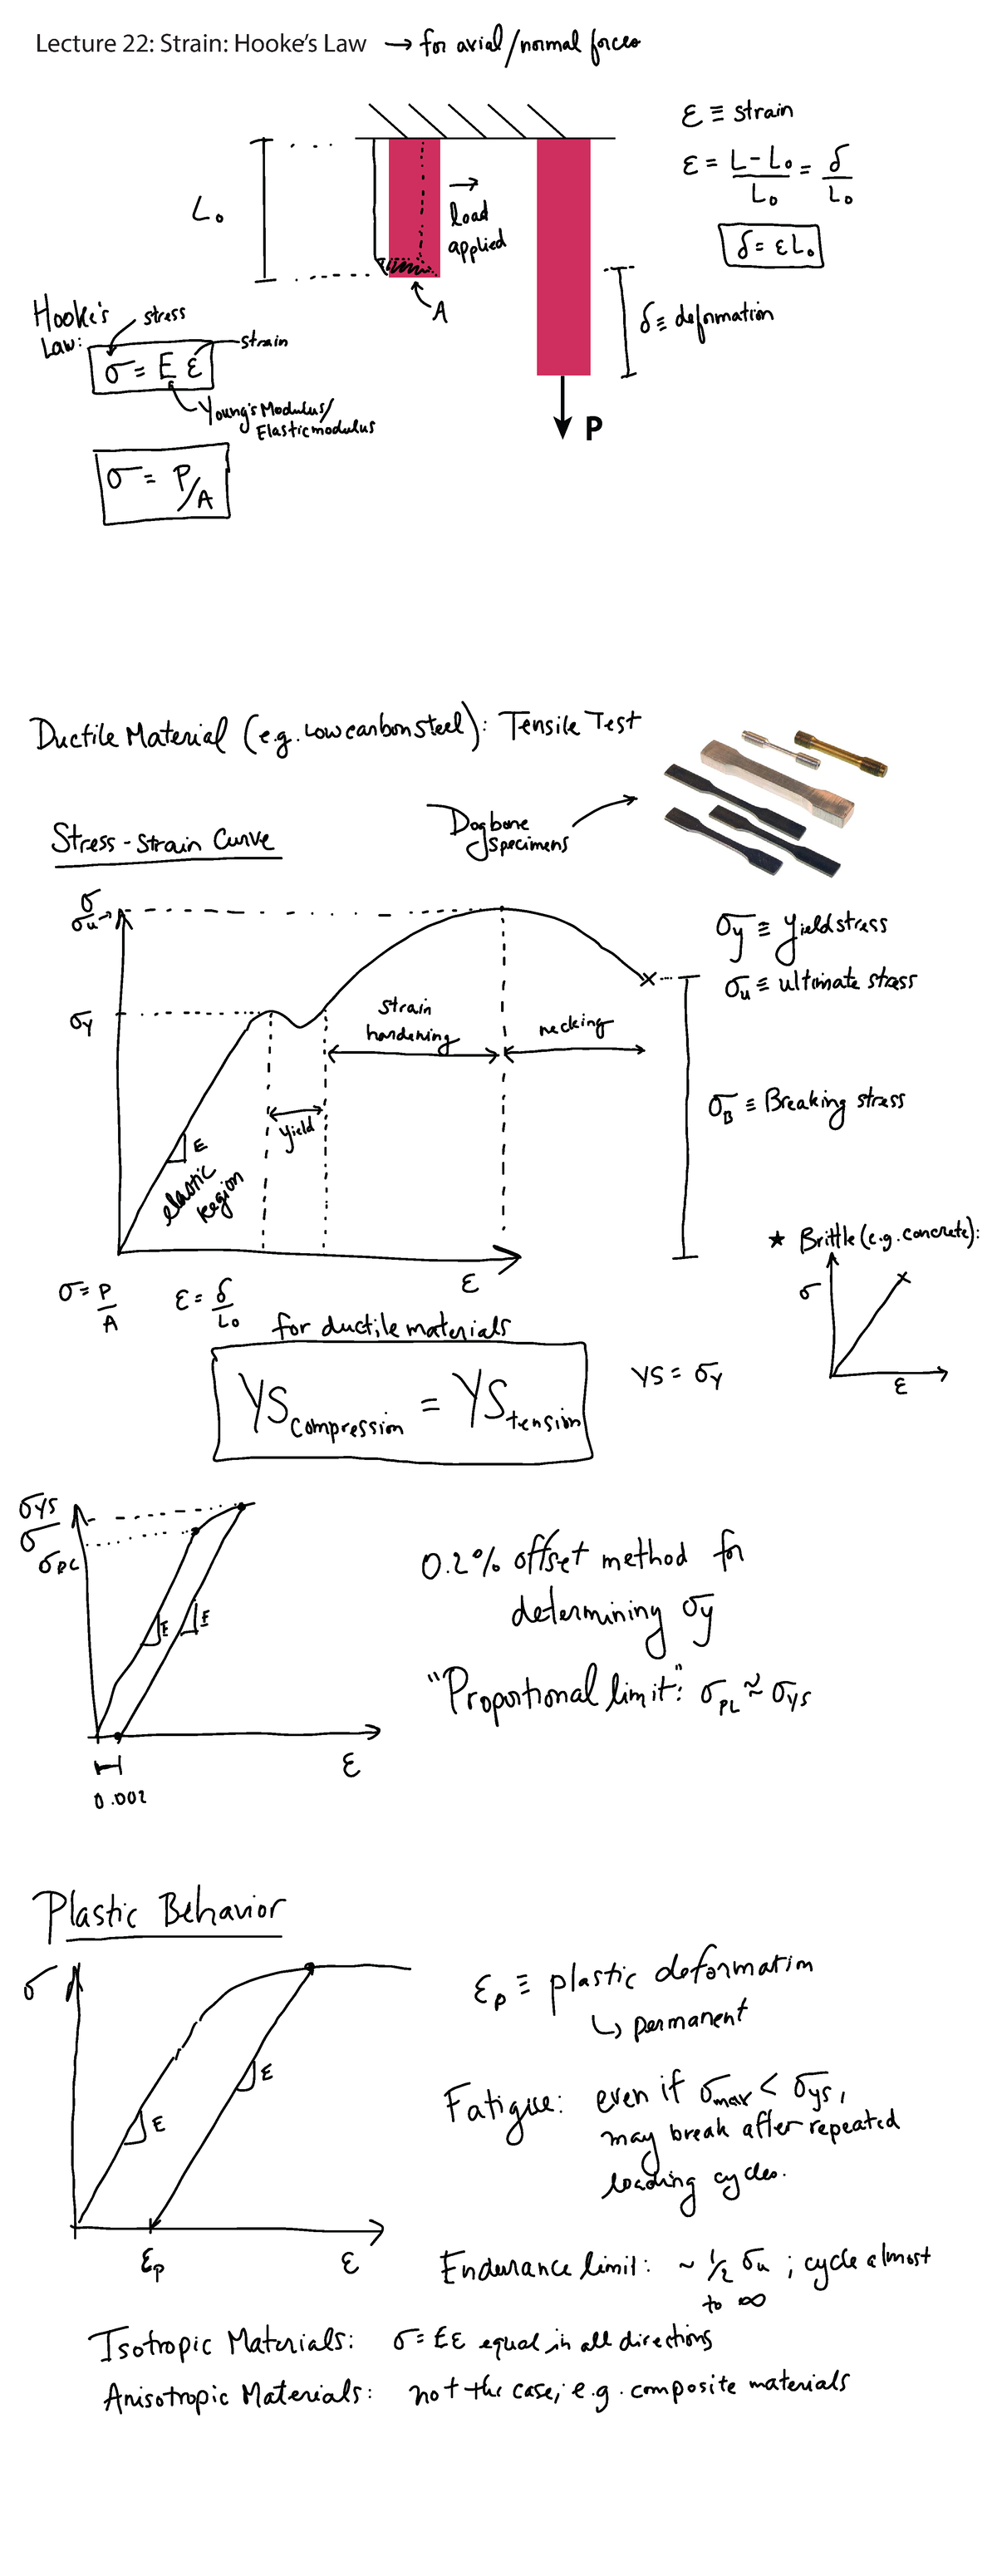 Lecture 22: Strain: Hooke's Law → for axial/normal forces
ε ≡ strain
ε = L - L₀ / L₀ = δ / L₀
δ = εL₀
L₀
→ load applied
A
δ ≡ deformation
P
Hooke's Law:
stress
strain
σ = E ε
Young's Modulus/
Elastic modulus
σ = P/A
Ductile Material (e.g. low carbon steel): Tensile Test
Dogbone
specimens
Stress-Strain Curve
σ
σu →
σy
strain
hardening
necking
yield
E
elastic
region
ε
σy ≡ yield stress
σu ≡ ultimate stress
σB ≡ Breaking stress
★ Brittle (e.g. concrete):
σ
ε
σ = P/A
ε = δ/L₀
for ductile materials
YS compression = YS tension
YS = σy
σys
σ
σPL
E
E
ε
0.002
0.2% offset method for
determining σy
"Proportional limit": σPL ≈ σys
Plastic Behavior
σ
E
E
εp
ε
εp ≡ plastic deformation
↳ permanent
Fatigue: even if σmax < σys,
may break after repeated
loading cycles.
Endurance limit: ~ 1/2 σu ; cycle almost
to ∞
Isotropic Materials: σ = Eε equal in all directions
Anisotropic Materials: not the case, e.g. composite materials